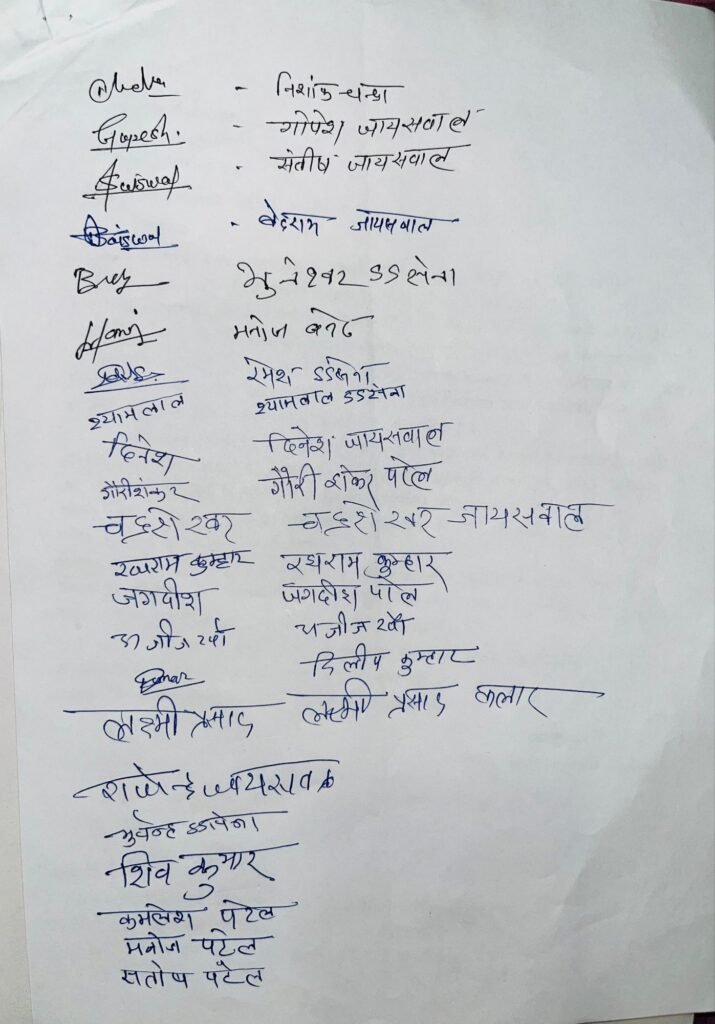 - निशांत चन्द्रा
Gopesh. - गोपेश जायसवाल
Jaiswal - संतोष जायसवाल
Jaiswal - वेदराम जायसवाल
भुनेश्वर डडसेना
Manoj मनोज
रमेश डडसेना
श्यामलाल श्यामलाल डडसेना
दिनेश दिनेश जायसवाल
गौरीशंकर गौरी शंकर पटेल
चंद्रशेखर चंद्रशेखर जायसवाल
रथराम कुम्हार रथराम कुम्हार
जगदीश जगदीश पटेल
अजीज खाँ अजीज खाँ
Kumar दिलीप कुम्हार
लक्ष्मी प्रसाद लक्ष्मी प्रसाद कलार
राजेन्द्र जायसवाल
डडसेना
शिव कुमार
कमलेश पटेल
मनोज पटेल
संतोष पटेल